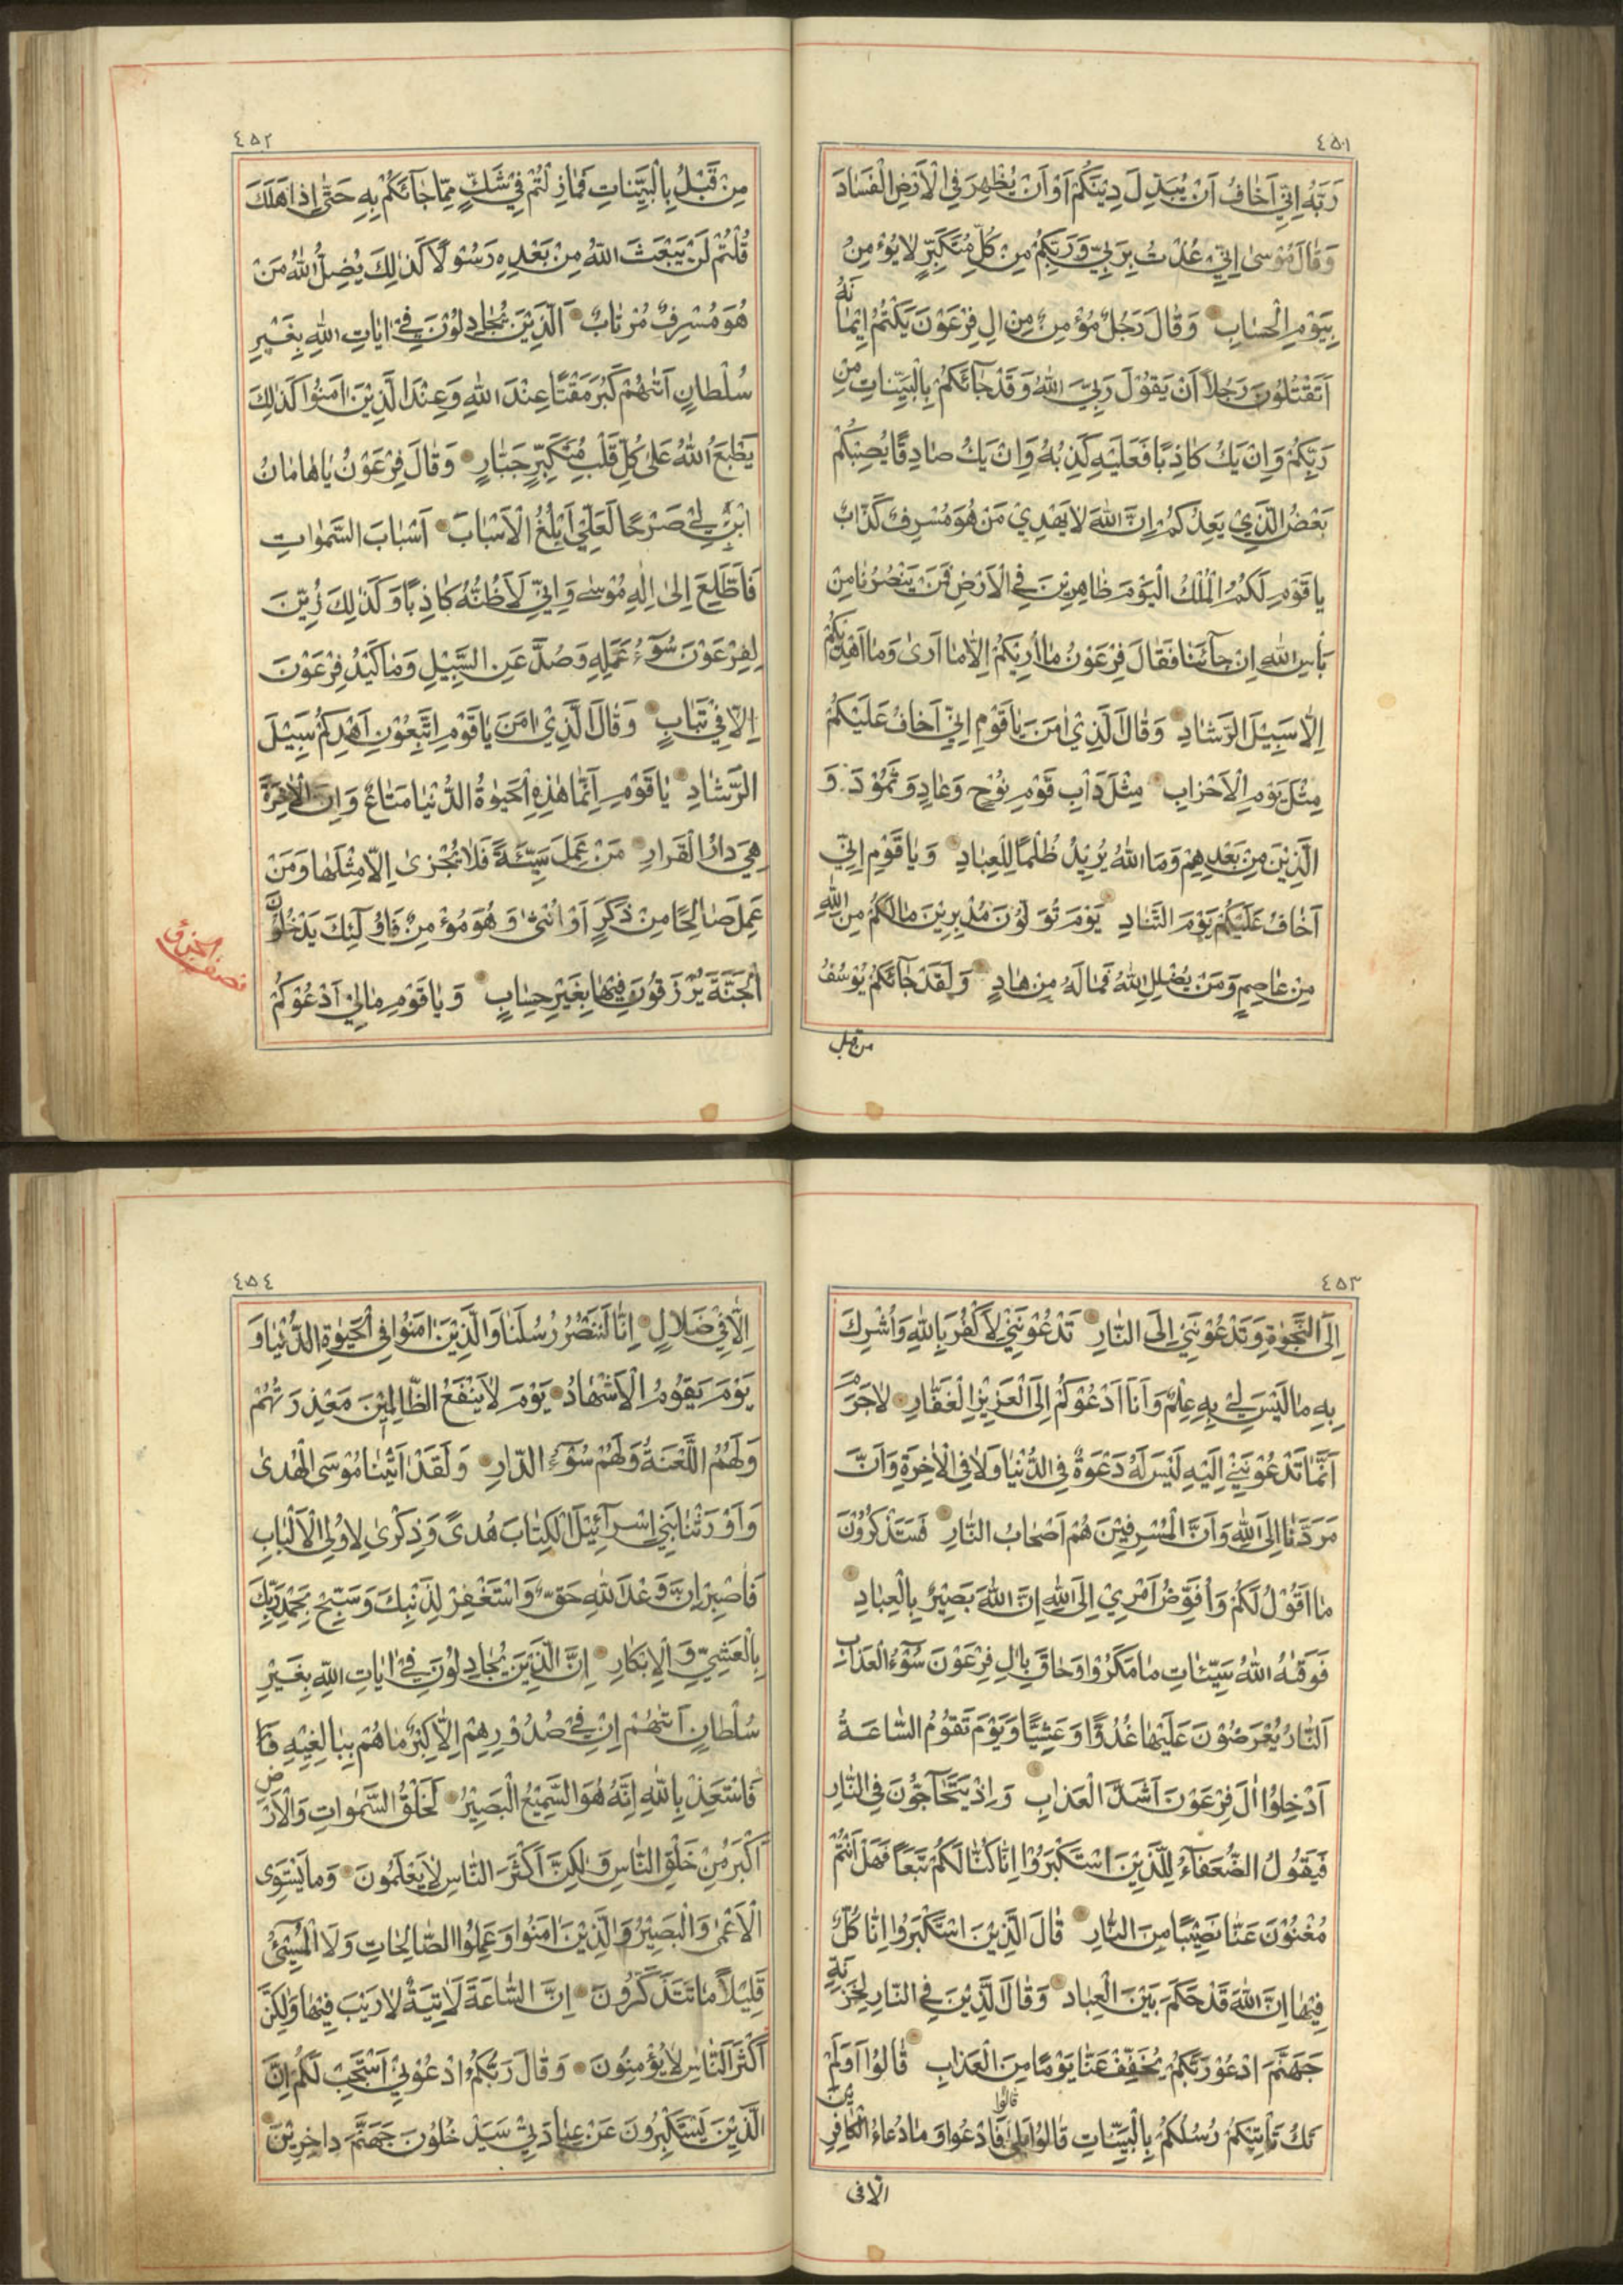 ٤٥١
رَبَّهُ اِنّيِ اَخَافُ اَنْ يُبَدِّلَ دِيْنَكُمْ اَوْ اَنْ يُظْهِرَ فِي الْاَرْضِ الْفَسَادَ
وَقَالَ مُوْسٰى اِنّيِ عُذْتُ بِرَبّيِ وَرَبِّكُمْ مِنْ كُلِّ مُتَكَبِّرٍ لَا يُؤْمِنُ
بِيَوْمِ الْحِسَابِ وَقَالَ رَجُلٌ مُؤْمِنٌ مِنْ اٰلِ فِرْعَوْنَ يَكْتُمُ اِيْمَانَهُ
اَتَقْتُلُونَ رَجُلًا اَنْ يَقُوْلَ رَبّيَِ اللهُ وَقَدْ جَائَكُمْ بِالْبَيِّنَاتِ مِنْ
رَبِّكُمْ وَاِنْ يَكُ كَاذِبًا فَعَلَيْهِ كَذِبُهُ وَاِنْ يَكُ صَادِقًا يُصِبْكُمْ
بَعْضُ الَّذِيْ يَعِدُكُمْ اِنَّ اللهَ لَا يَهْدِيْ مَنْ هُوَ مُسْرِفٌ كَذَّابٌ
يَا قَوْمِ لَكُمُ الْمُلْكُ الْيَوْمَ ظَاهِرِيْنَ فِي الْاَرْضِ فَمَنْ يَنْصُرُنَا مِنْ
بَأْسِ اللهِ اِنْ جَائَنَا فَقَالَ فِرْعَوْنُ مَا اُرِيْكُمْ اِلَّا مَا اَرٰى وَمَا اَهْدِيْكُمْ
اِلَّا سَبِيْلَ الرَّشَادِ وَقَالَ الَّذِيْ اٰمَنَ يَا قَوْمِ اِنّيِ اَخَافُ عَلَيْكُمْ
مِثْلَ يَوْمِ الْاَحْزَابِ مِثْلَ دَاْبِ قَوْمِ نُوْحٍ وَعَادٍ وَثَمُوْدَ وَ
الَّذِيْنَ مِنْ بَعْدِهِمْ وَمَا اللهُ يُرِيْدُ ظُلْمًا لِلْعِبَادِ وَيَا قَوْمِ اِنّيِ
اَخَافُ عَلَيْكُمْ يَوْمَ التَّنَادِ يَوْمَ تُوَلُّوْنَ مُدْبِرِيْنَ مَالَكُمْ مِنَ اللهِ
مِنْ عَاصِمٍ وَمَنْ يُضْلِلِ اللهُ فَمَا لَهُ مِنْ هَادٍ وَلَقَدْ جَائَكُمْ يُوْسُفُ
من قبل
٤٥٢
مِنْ قَبْلُ بِالْبَيِّنَاتِ فَمَا زِلْتُمْ فِيْ شَكٍّ مِمَّا جَائَكُمْ بِهِ حَتّٰى اِذَا هَلَكَ
قُلْتُمْ لَنْ يَبْعَثَ اللهُ مِنْ بَعْدِهِ رَسُوْلًا كَذٰلِكَ يُضِلُّ اللهُ مَنْ
هُوَ مُسْرِفٌ مُرْتَابٌ اَلَّذِيْنَ يُجَادِلُوْنَ فِيْ اٰيَاتِ اللهِ بِغَيْرِ
سُلْطَانٍ اَتٰهُمْ كَبُرَ مَقْتًا عِنْدَ اللهِ وَعِنْدَ الَّذِيْنَ اٰمَنُوْا كَذٰلِكَ
يَطْبَعُ اللهُ عَلٰى كُلِّ قَلْبِ مُتَكَبِّرٍ جَبَّارٍ وَقَالَ فِرْعَوْنُ يَا هَامَانُ
ابْنِ لِيْ صَرْحًا لَعَلّيِ اَبْلُغُ الْاَسْبَابَ اَسْبَابَ السَّمٰوَاتِ
فَاَطَّلِعَ اِلٰى اِلٰهِ مُوْسٰى وَاِنّيِ لَاَظُنُّهُ كَاذِبًا وَكَذٰلِكَ زُيِّنَ
لِفِرْعَوْنَ سُوْٓءُ عَمَلِهِ وَصُدَّ عَنِ السَّبِيْلِ وَمَا كَيْدُ فِرْعَوْنَ
اِلَّا فِيْ تَبَابٍ وَقَالَ الَّذِيْ اٰمَنَ يَا قَوْمِ اتَّبِعُوْنِ اَهْدِكُمْ سَبِيْلَ
الرَّشَادِ يَا قَوْمِ اِنَّمَا هٰذِهِ الْحَيٰوةُ الدُّنْيَا مَتَاعٌ وَاِنَّ الْاٰخِرَةَ
هِيَ دَارُ الْقَرَارِ مَنْ عَمِلَ سَيِّئَةً فَلَا يُجْزٰى اِلَّا مِثْلَهَا وَمَنْ
عَمِلَ صَالِحًا مِنْ ذَكَرٍ اَوْ اُنْثٰى وَهُوَ مُؤْمِنٌ فَاُولٰٓئِكَ يَدْخُلُوْنَ
الْجَنَّةَ يُرْزَقُوْنَ فِيْهَا بِغَيْرِ حِسَابٍ وَيَا قَوْمِ مَالِيْ اَدْعُوْكُمْ
نصف الحزب
٤٥٣
اِلَى النَّجٰوةِ وَتَدْعُوْنَنيِ اِلَى النَّارِ تَدْعُوْنَنيِ لِاَكْفُرَ بِاللهِ وَاُشْرِكَ
بِهِ مَا لَيْسَ لِيْ بِهِ عِلْمٌ وَاَنَا اَدْعُوْكُمْ اِلَى الْعَزِيْزِ الْغَفَّارِ لَا جَرَمَ
اَنَّمَا تَدْعُوْنَنيِ اِلَيْهِ لَيْسَ لَهُ دَعْوَةٌ فِي الدُّنْيَا وَلَا فِي الْاٰخِرَةِ وَاَنَّ
مَرَدَّنَا اِلَى اللهِ وَاَنَّ الْمُسْرِفِيْنَ هُمْ اَصْحَابُ النَّارِ فَسَتَذْكُرُوْنَ
مَا اَقُوْلُ لَكُمْ وَاُفَوِّضُ اَمْرِيْ اِلَى اللهِ اِنَّ اللهَ بَصِيْرٌ بِالْعِبَادِ
فَوَقٰهُ اللهُ سَيِّئَاتِ مَا مَكَرُوْا وَحَاقَ بِاٰلِ فِرْعَوْنَ سُوْٓءُ الْعَذَابِ
اَلنَّارُ يُعْرَضُوْنَ عَلَيْهَا غُدُوًّا وَعَشِيًّا وَيَوْمَ تَقُوْمُ السَّاعَةُ
اَدْخِلُوْا اٰلَ فِرْعَوْنَ اَشَدَّ الْعَذَابِ وَاِذْ يَتَحَاجُّوْنَ فِي النَّارِ
فَيَقُوْلُ الضُّعَفَاءُ لِلَّذِيْنَ اسْتَكْبَرُوْا اِنَّا كُنَّا لَكُمْ تَبَعًا فَهَلْ اَنْتُمْ
مُغْنُوْنَ عَنَّا نَصِيْبًا مِنَ النَّارِ قَالَ الَّذِيْنَ اسْتَكْبَرُوْا اِنَّا كُلٌّ
فِيْهَا اِنَّ اللهَ قَدْ حَكَمَ بَيْنَ الْعِبَادِ وَقَالَ الَّذِيْنَ فِي النَّارِ لِخَزَنَةِ
جَهَنَّمَ ادْعُوْا رَبَّكُمْ يُخَفِّفْ عَنَّا يَوْمًا مِنَ الْعَذَابِ قَالُوْا اَوَلَمْ
تَكُ تَأْتِيْكُمْ رُسُلُكُمْ بِالْبَيِّنَاتِ قَالُوْا بَلٰى قالوا فَادْعُوْا وَمَا دُعَاءُ الْكَافِرِيْنَ
الا فى
٤٥٤
اِلَّا فِيْ ضَلَالٍ اِنَّا لَنَنْصُرُ رُسُلَنَا وَالَّذِيْنَ اٰمَنُوْا فِي الْحَيٰوةِ الدُّنْيَا وَ
يَوْمَ يَقُوْمُ الْاَشْهَادُ يَوْمَ لَا يَنْفَعُ الظَّالِمِيْنَ مَعْذِرَتُهُمْ
وَلَهُمُ اللَّعْنَةُ وَلَهُمْ سُوْٓءُ الدَّارِ وَلَقَدْ اٰتَيْنَا مُوْسَى الْهُدٰى
وَاَوْرَثْنَا بَنيِ اِسْرَائِيْلَ الْكِتَابَ هُدًى وَذِكْرٰى لِاُولِي الْاَلْبَابِ
فَاصْبِرْ اِنَّ وَعْدَ اللهِ حَقٌّ وَاسْتَغْفِرْ لِذَنْبِكَ وَسَبِّحْ بِحَمْدِ رَبِّكَ
بِالْعَشِيِّ وَالْاِبْكَارِ اِنَّ الَّذِيْنَ يُجَادِلُوْنَ فِيْ اٰيَاتِ اللهِ بِغَيْرِ
سُلْطَانٍ اَتٰهُمْ اِنْ فِيْ صُدُوْرِهِمْ اِلَّا كِبْرٌ مَا هُمْ بِبَالِغِيْهِ
فَاسْتَعِذْ بِاللهِ اِنَّهُ هُوَ السَّمِيْعُ الْبَصِيْرُ لَخَلْقُ السَّمٰوَاتِ وَالْاَرْضِ
اَكْبَرُ مِنْ خَلْقِ النَّاسِ وَلٰكِنَّ اَكْثَرَ النَّاسِ لَا يَعْلَمُوْنَ وَمَا يَسْتَوِى
الْاَعْمٰى وَالْبَصِيْرُ وَالَّذِيْنَ اٰمَنُوْا وَعَمِلُوا الصَّالِحَاتِ وَلَا الْمُسِيْئُ
قَلِيْلًا مَا تَتَذَكَّرُوْنَ اِنَّ السَّاعَةَ لَاٰتِيَةٌ لَا رَيْبَ فِيْهَا وَلٰكِنَّ
اَكْثَرَ النَّاسِ لَا يُؤْمِنُوْنَ وَقَالَ رَبُّكُمُ ادْعُوْنيِ اَسْتَجِبْ لَكُمْ اِنَّ
الَّذِيْنَ يَسْتَكْبِرُوْنَ عَنْ عِبَادَتيِ سَيَدْخُلُوْنَ جَهَنَّمَ دَاخِرِيْنَ